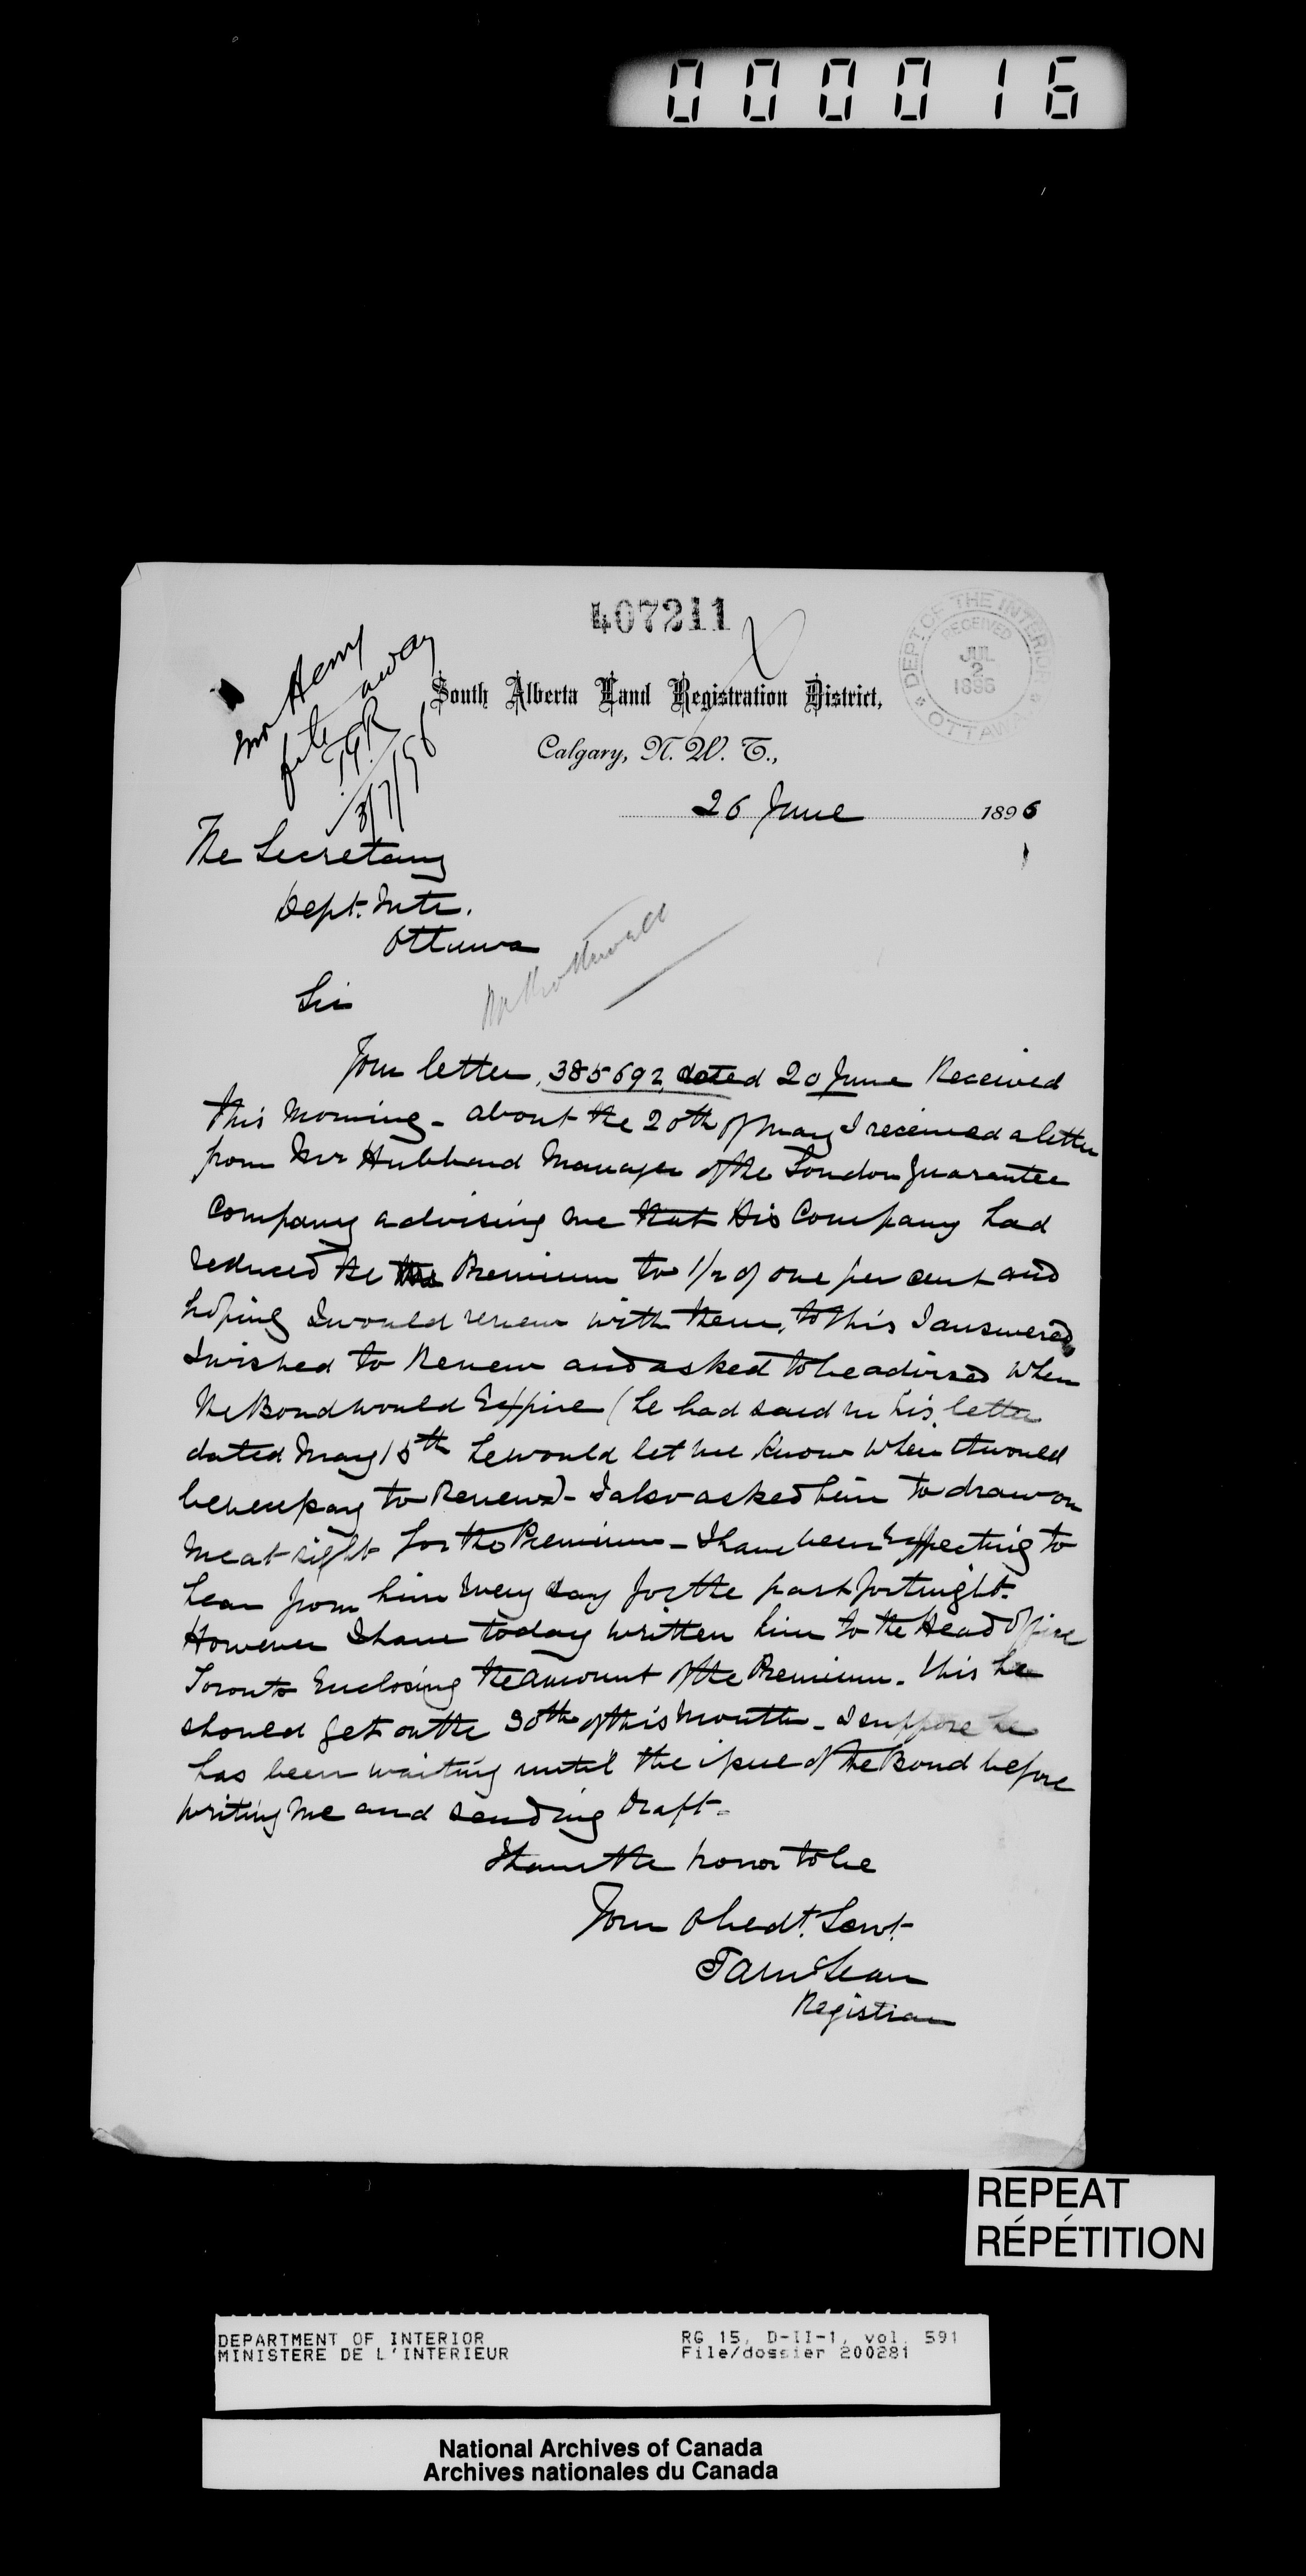 000016
407211
DEPT. OF THE INTERIOR
RECEIVED
JUL
2
1896
OTTAWA
Mr Henry
file away
3/7/96
South Alberta Land Registration District,
Calgary, N. W. T.,
26 June 1896
The Secretary
Dept. Inte.
Ottawa
Sir
Your letter, 385692, dated 20 June Received
this Morning - about the 20th of May I received a letter
from Mr Hubbard Manager of the London Guarantee
Company advising me that His Company had
reduced the the Premium to 1/2 of one per cent and
hoping I would renew with them, to this I answered
I wished to Renew and asked to be advised when
the Bond would Expire (he had said in his letter
dated May 15th he would let me know when it would
be necessary to Renew) - I also asked him to draw on
me at sight for the Premium - I have been Expecting to
hear from him every day for the past fortnight.
However I have today written him to the Head Office
Toronto Enclosing the amount of the Premium. this he
should get on the 30th of this Month - I suppose he
has been waiting until the issue of the Bond before
writing me and sending Draft.
I have the honor to be
Your Obedt. Servt.
Registrar
REPEAT
RÉPÉTITION
DEPARTMENT OF INTERIOR
MINISTERE DE L'INTERIEUR
RG 15, D-II-1, vol. 591
File/dossier 200281
National Archives of Canada
Archives nationales du Canada